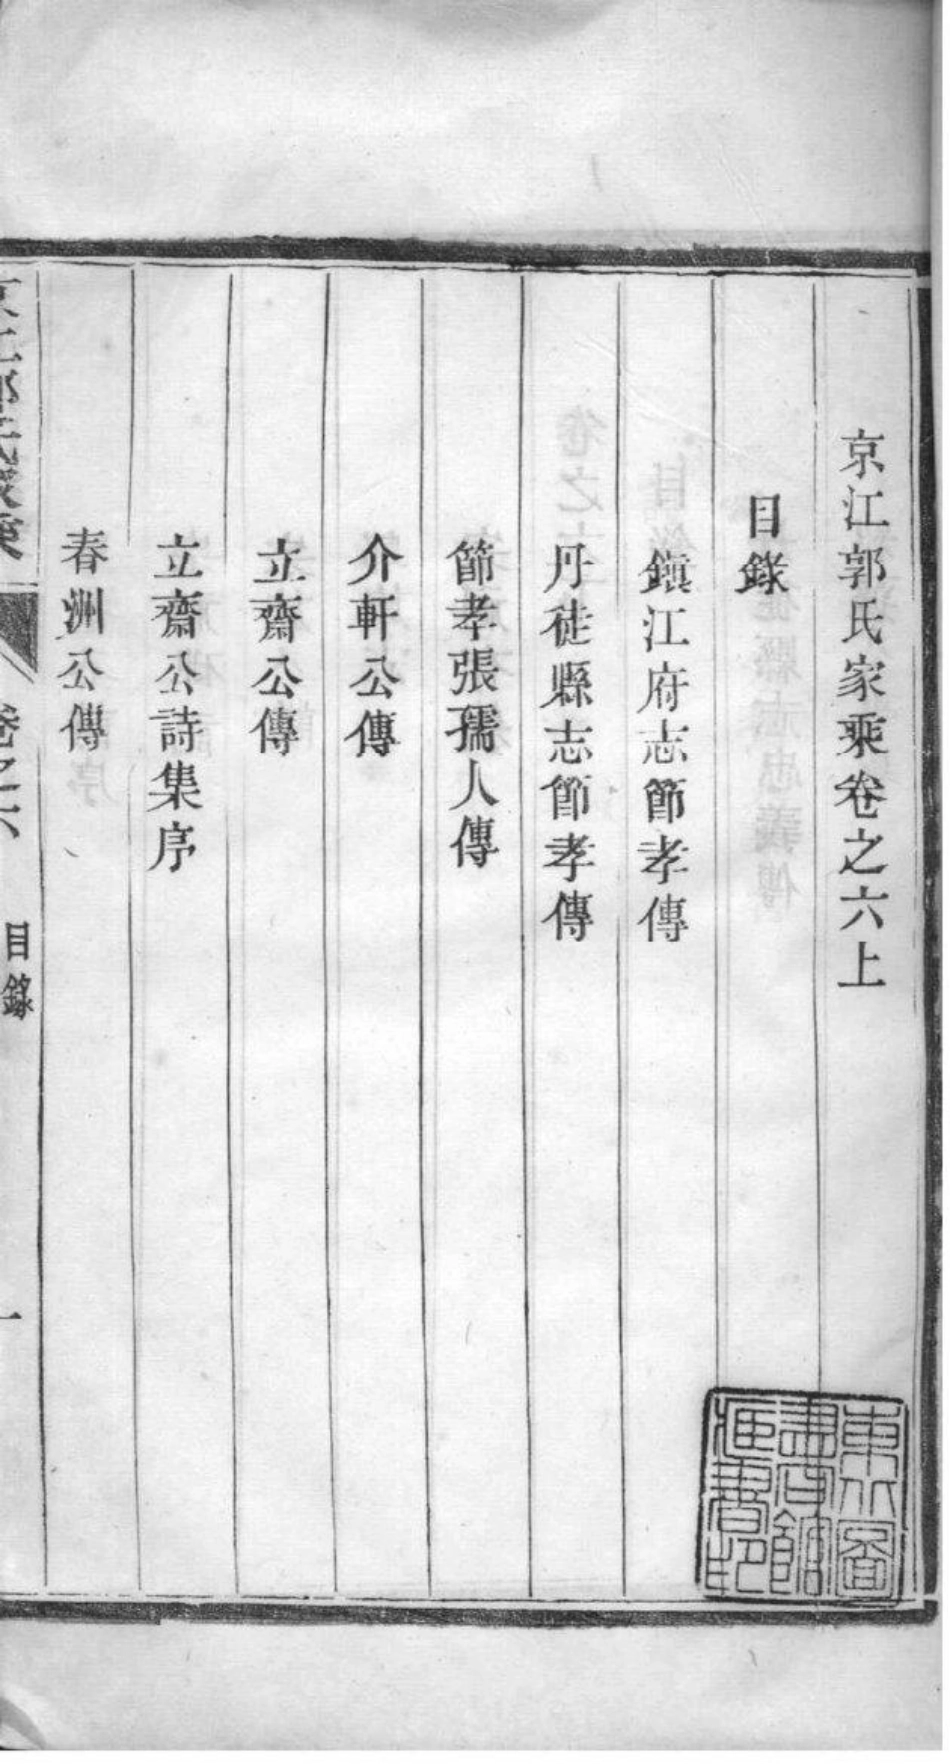 京江郭氏家乘卷之六上
目錄
鎭江府志節孝傳
丹徒縣志節孝傳
節孝張孺人傳
介軒公傳
立齋公傳
立齋公詩集序
春洲公傳
京江郭氏家乘
卷之六
目錄
一